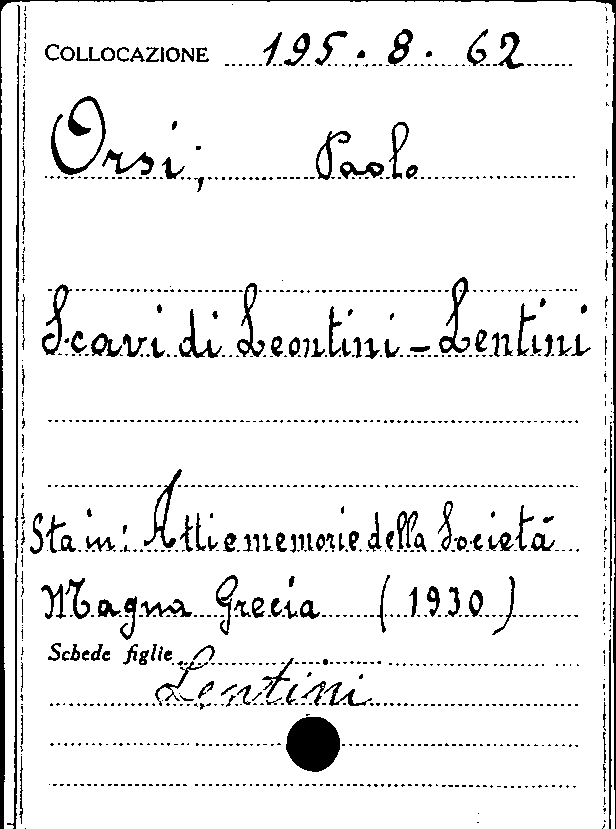 COLLOCAZIONE 195.8.62
Orsi, Paolo
Scavi di Leontini - Lentini
Sta in: Atti e memorie della Società
Magna Grecia (1930)
Schede figlie
Lentini